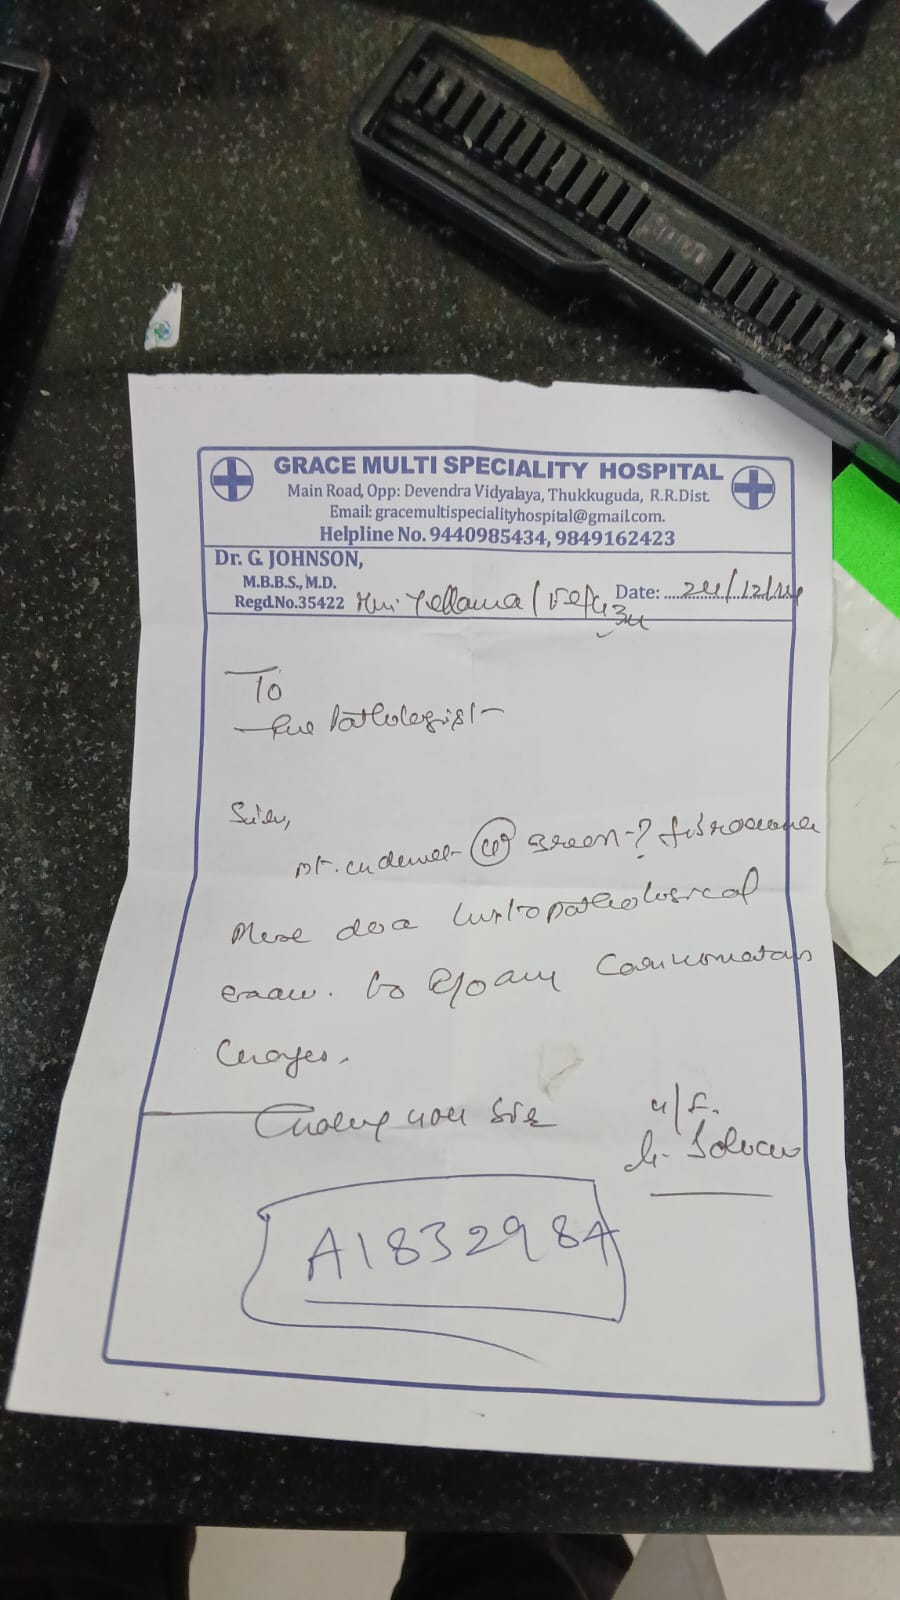 GRACE MULTI SPECIALITY HOSPITAL
Main Road, Opp: Devendra Vidyalaya, Thukkuguda, R.R.Dist.
Email: gracemultispecialityhospital@gmail.com.
Helpline No. 9440985434, 9849162423
Dr. G. JOHNSON,
M.B.B.S., M.D.
Regd.No.35422 Yellama Date: 24/12/
To
the Pathologist
Sir,
? fibroadenoma
Please do a histopathological
exam. to R/o any Carcinomatous
Changes.
Thanking you Sir
G. Johnson
A1832984